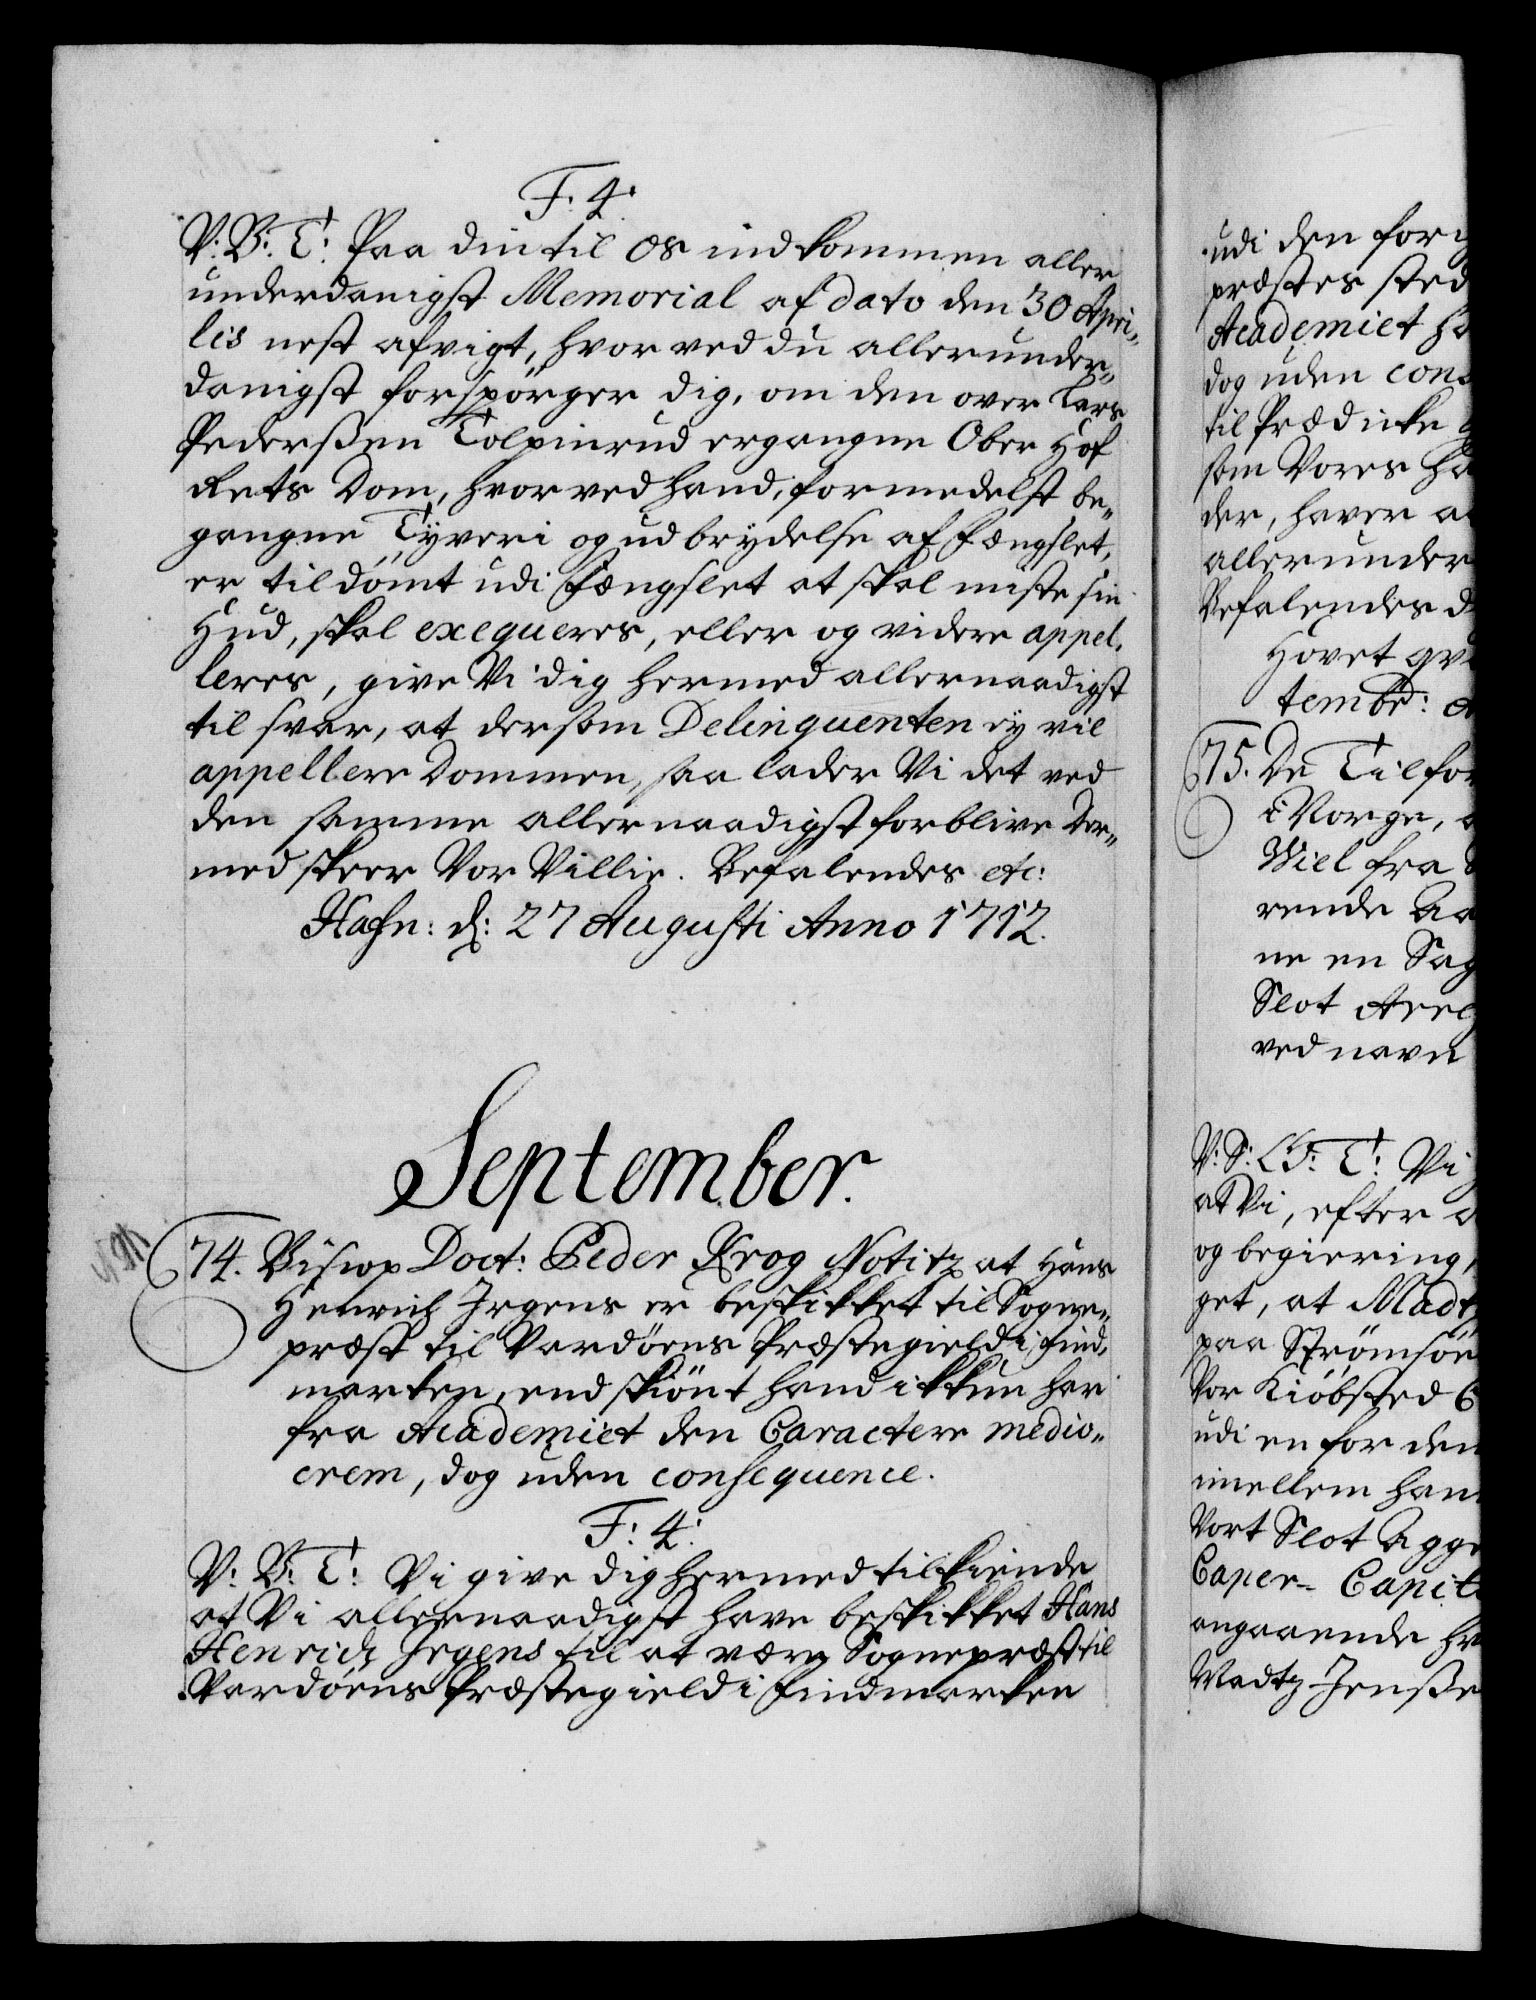 F: 4:
V: B: T: Paa din til Os indkommen aller
underdanigst Memorial af dato den 30 Apri„
lis nest afvigt, hvorved du allerunder„
danigst forspörger dig, om den over Lars
Pederßen Tolpinrud ergangne Ober Hof
Rets Dom, hvorved hand, formedelst be„
gangne Tÿveri og udbrydelse af Fængslet,
er tildömt udi Fængslet at skal miste sin
Hud, skal exequeres, eller og videre appel„
leres, give Vi dig hermed allernaadigst
til svar, at dersom Delinquenten ey vil
appellere Dommen, saa lader Vi det ved
den samme allernaadigst forblive Der„
med skeer Vor Villie. Befalendes etc:
Hafn: d: 27 Augusti Anno 1712.
September.
74. Biscop Doct: Peder Krog Notitz at Hans
Henrich Jrgens er beskikket til Sogne„
præst til Vardöens Præstegield i Find„
marken, endskiönt hand ikkun har
fra Academiet den Caractere medio„
crem, dog uden consequence.
F: 4:
V: B: T: Vi give dig hermed tilkiende
at Vi allernaadigst have beskikket Hans
Henrich Jrgens til at være Sognepræst til
Vardöens Præstegield i Findmarken
udi den forig
præstes sted
Academiet ha
dog uden cons
til Prædicke
som Vores ha
der, haver a
allerunder
Befalendes d
Hovet qva
tembr: A
75. De Tilfor
i Norge, a
Wiel fra
rende Aa
ne en Sag
Slot Areh
ved navn
V: S: G: T: Vi
at Vi, efter a
og begiering,
get, at Madtz
paa Strömsöe
Vor Kiöbsted C
udi en for den
imellem han
Vort Slot Agge
Caper- Capit
angaaende hv
Madtz Jenße